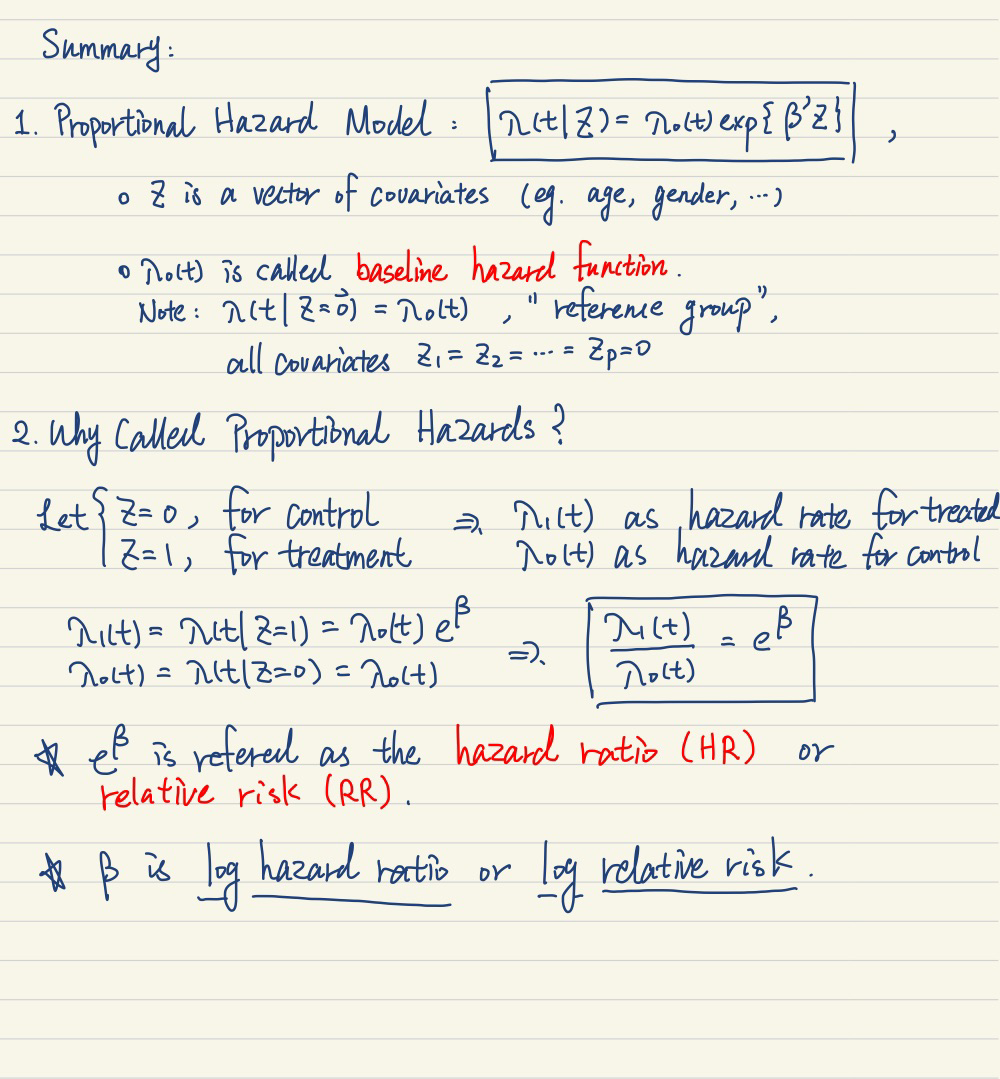 Summary:
1. Proportional Hazard Model : λ(t|Z) = λ₀(t) exp{β'Z} ,
∘ Z is a vector of covariates (eg. age, gender, ...)
∘ λ₀(t) is called baseline hazard function.
Note: λ(t|Z=0⃗) = λ₀(t) , "reference group",
all covariates Z₁ = Z₂ = ... = Zp = 0
2. Why Called Proportional Hazards ?
Let { Z=0, for control ⇒ λ₁(t) as hazard rate for treated
Z=1, for treatment λ₀(t) as hazard rate for control
λ₁(t) = λ(t|Z=1) = λ₀(t) e^β ⇒ λ₁(t)/λ₀(t) = e^β
λ₀(t) = λ(t|Z=0) = λ₀(t)
☆ e^β is refered as the hazard ratio (HR) or
relative risk (RR).
☆ β is log hazard ratio or log relative risk.